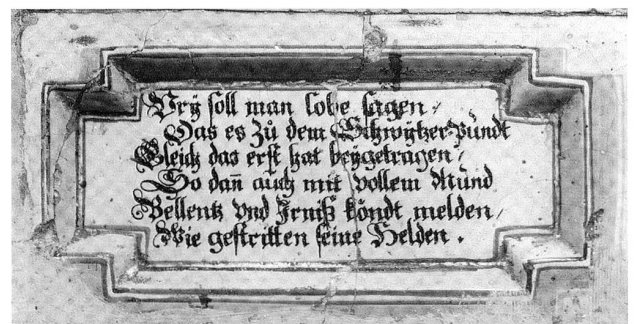 Vry soll man lobe sagen,
Das es Zů dem Schwytzer Pundt
Gleich das erst hat beygetragen,
So dañ auch mit vollem Mund
Bellentz vnd Jrniß köndt melden,
Wie gestritten seine Helden.